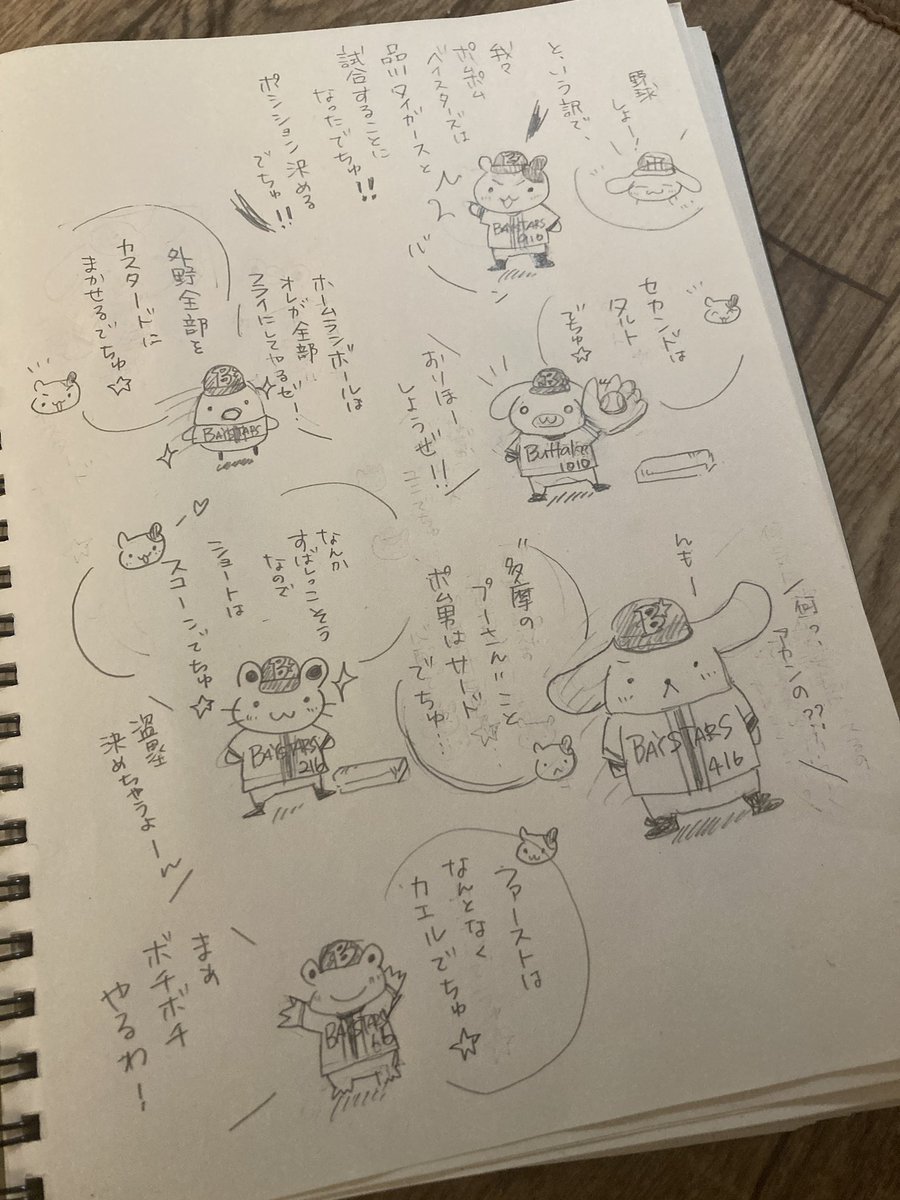 野球
しよー!
と、いう訳で、
我々
ポムポム
ベイスターズは
品川タイガースと
試合することに
なったでちゅ!!
ポジション決める
でちゅ!!
バ
ン
BAYSTARS
910
セカンドは
タルト
でちゅ☆
おりほー
しようぜ!!
Buffaloes
1010
ホームランボールは
オレが全部
フライにしてやるぜー!
外野全部を
カスタードに
まかせるでちゅ☆
BAYSTARS
んもー
何っ、
アカンの??
BAYSTARS
416
"多摩の
プーさん"こと
ポム男はサード
でちゅ…
なんか
すばしっこそう
なので
ショートは
スコーンでちゅ☆
BAYSTARS
216
盗塁
決めちゃうよーん
ファーストは
なんとなく
カエルでちゅ☆
BAYSTARS
66
まぁ
ボチボチ
やるわー!